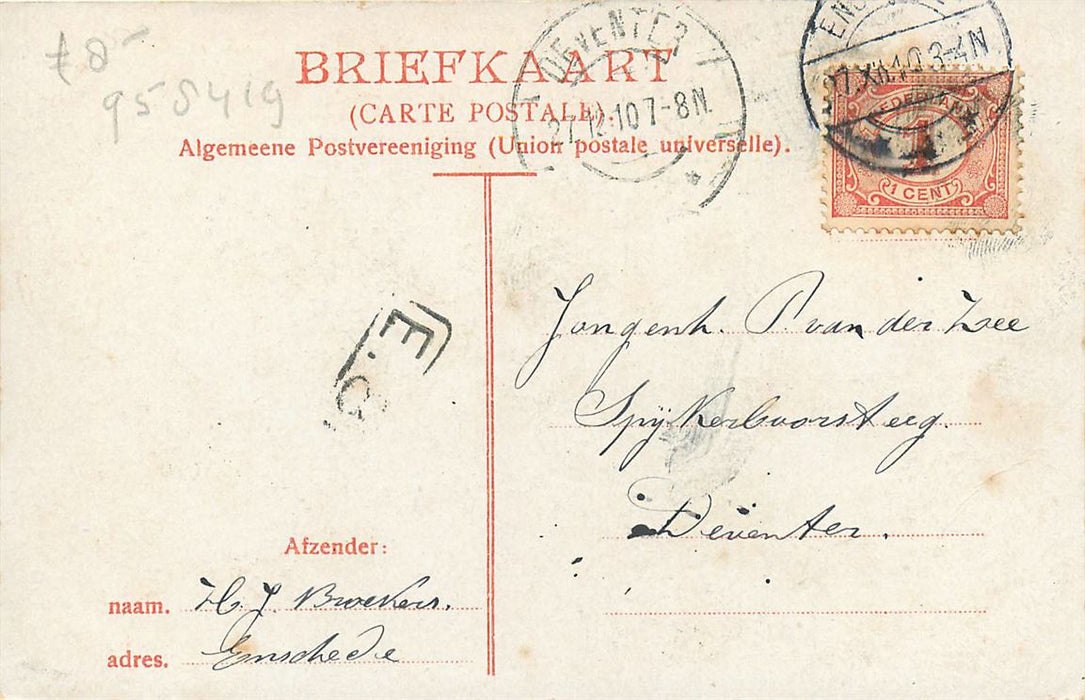 £8-
955419
BRIEFKAART
(CARTE POSTALE).
Algemeene Postvereeniging (Union postale universelle).
DEVENTER
27.12.10 7-8N.
27.XII.10 3-4N
NEDERLAND
1
1 CENT
E.G.
Jongenh. P. van der Zee
Spijkerboorsteeg.
Deventer.
Afzender:
naam. H. J. Broekers.
adres. Enschede